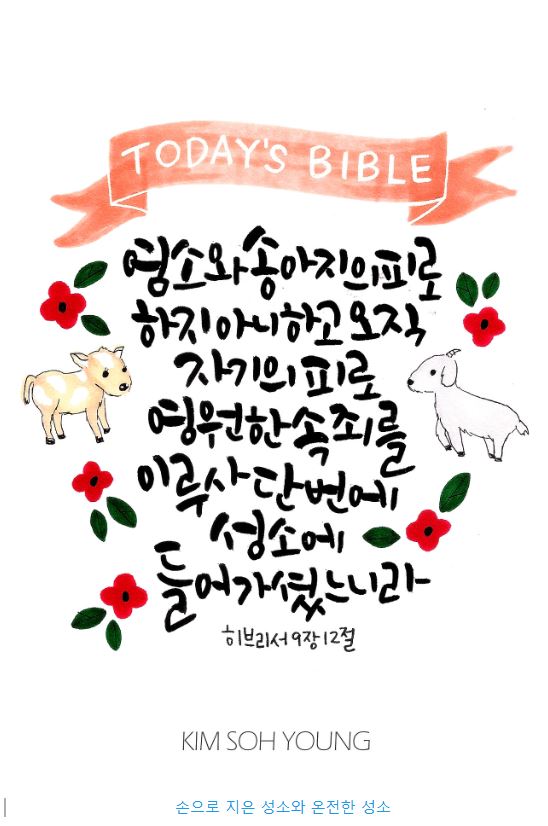 TODAY'S BIBLE
염소와 송아지의 피로
하지 아니하고 오직
자기의 피로
영원한 속죄를
이루사 단번에
성소에
들어가셨느니라
히브리서 9장 12절
KIM SOH YOUNG
손으로 지은 성소와 온전한 성소